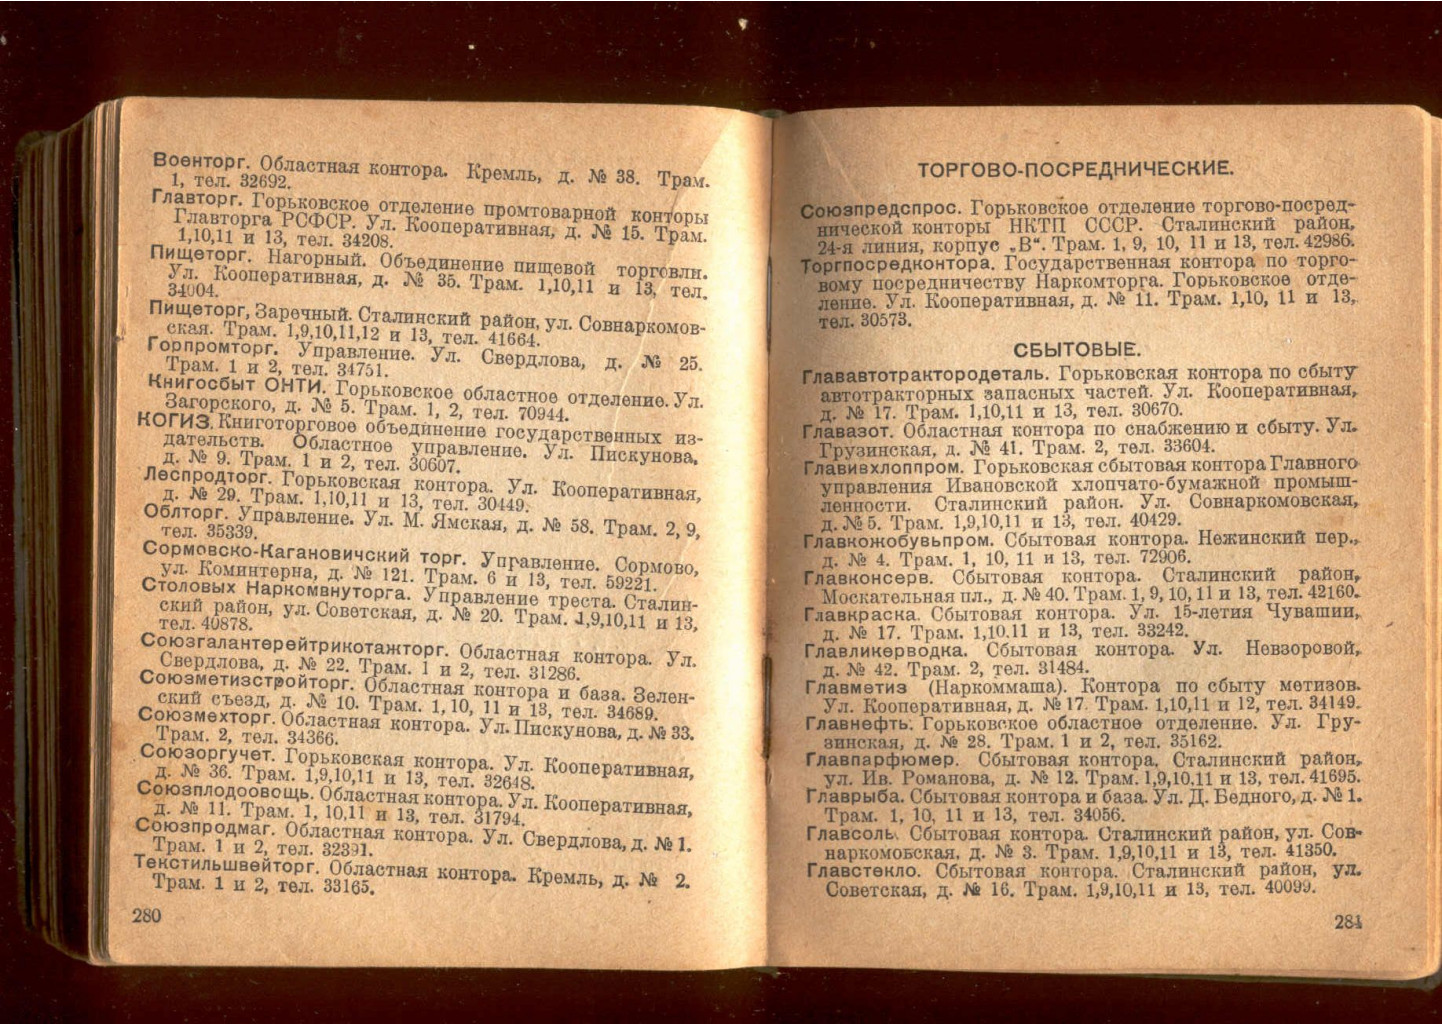 Военторг. Областная контора. Кремль, д. № 38. Трам.
1, тел. 32692.
Главторг. Горьковское отделение промтоварной конторы
Главторга РСФСР. Ул. Кооперативная, д. № 15. Трам.
1,10,11 и 13, тел. 34208.
Пищеторг. Нагорный. Объединение пищевой торговли.
Ул. Кооперативная, д. № 35. Трам. 1,10,11 и 13, тел.
34004.
Пищеторг, Заречный. Сталинский район, ул. Совнаркомов-
ская. Трам. 1,9,10,11,12 и 13, тел. 41664.
Горпромторг. Управление. Ул. Свердлова, д. № 25.
Трам. 1 и 2, тел. 34751.
Книгосбыт ОНТИ. Горьковское областное отделение. Ул.
Загорского, д. № 5. Трам. 1, 2, тел. 70944.
КОГИЗ. Книготорговое объединение государственных из-
дательств. Областное управление. Ул. Пискунова,
д. № 9. Трам. 1 и 2, тел. 30607.
Леспродторг. Горьковская контора. Ул. Кооперативная,
д. № 29. Трам. 1,10,11 и 13, тел. 30449.
Облторг. Управление. Ул. М. Ямская, д. № 58. Трам. 2, 9,
тел. 35339.
Сормовско-Кагановичский торг. Управление. Сормово,
ул. Коминтерна, д. № 121. Трам. 6 и 13, тел. 59221.
Столовых Наркомвнуторга. Управление треста. Сталин-
ский район, ул. Советская, д. № 20. Трам. 1,9,10,11 и 13,
тел. 40878.
Союзгалантерейтрикотажторг. Областная контора. Ул.
Свердлова, д. № 22. Трам. 1 и 2, тел. 31286.
Союзметизстройторг. Областная контора и база. Зелен-
ский съезд, д. № 10. Трам. 1, 10, 11 и 13, тел. 34689.
Союзмехторг. Областная контора. Ул. Пискунова, д. № 33.
Трам. 2, тел. 34366.
Союзоргучет. Горьковская контора. Ул. Кооперативная,
д. № 36. Трам. 1,9,10,11 и 13, тел. 32648.
Союзплодоовощь. Областная контора. Ул. Кооперативная,
д. № 11. Трам. 1, 10,11 и 13, тел. 31794.
Союзпродмаг. Областная контора. Ул. Свердлова, д. № 1.
Трам. 1 и 2, тел. 32391.
Текстильшвейторг. Областная контора. Кремль, д. № 2.
Трам. 1 и 2, тел. 33165.
280
ТОРГОВО-ПОСРЕДНИЧЕСКИЕ.
Союзпредспрос. Горьковское отделение торгово-посред-
нической конторы НКТП СССР. Сталинский район,
24-я линия, корпус „В“. Трам. 1, 9, 10, 11 и 13, тел. 42986.
Торгпосредконтора. Государственная контора по торго-
вому посредничеству Наркомторга. Горьковское отде-
ление. Ул. Кооперативная, д. № 11. Трам. 1,10, 11 и 13,
тел. 30573.
СБЫТОВЫЕ.
Глававтотрактородеталь. Горьковская контора по сбыту
автотракторных запасных частей. Ул. Кооперативная,
д. № 17. Трам. 1,10,11 и 13, тел. 30670.
Главазот. Областная контора по снабжению и сбыту. Ул.
Грузинская, д. № 41. Трам. 2, тел. 33604.
Главивхлоппром. Горьковская сбытовая контора Главного
управления Ивановской хлопчато-бумажной промыш-
ленности. Сталинский район. Ул. Совнаркомовская,
д. № 5. Трам. 1,9,10,11 и 13, тел. 40429.
Главкожобувьпром. Сбытовая контора. Нежинский пер.,
д. № 4. Трам. 1, 10, 11 и 13, тел. 72906.
Главконсерв. Сбытовая контора. Сталинский район,
Москательная пл., д. № 40. Трам. 1, 9, 10, 11 и 13, тел. 42160.
Главкраска. Сбытовая контора. Ул. 15-летия Чувашии,
д. № 17. Трам. 1,10.11 и 13, тел. 33242.
Главликерводка. Сбытовая контора. Ул. Невзоровой,
д. № 42. Трам. 2, тел. 31484.
Главметиз (Наркоммаша). Контора по сбыту метизов.
Ул. Кооперативная, д. № 17. Трам. 1,10,11 и 12, тел. 34149.
Главнефть. Горьковское областное отделение. Ул. Гру-
зинская, д. № 28. Трам. 1 и 2, тел. 35162.
Главпарфюмер. Сбытовая контора. Сталинский район,
ул. Ив. Романова, д. № 12. Трам. 1,9,10.11 и 13, тел. 41695.
Главрыба. Сбытовая контора и база. Ул. Д. Бедного, д. № 1.
Трам. 1, 10, 11 и 13, тел. 34056.
Главсоль. Сбытовая контора. Сталинский район, ул. Сов-
наркомовская, д. № 3. Трам. 1,9,10,11 и 13, тел. 41350.
Главстекло. Сбытовая контора. Сталинский район, ул.
Советская, д. № 16. Трам. 1,9,10,11 и 13, тел. 40099.
281